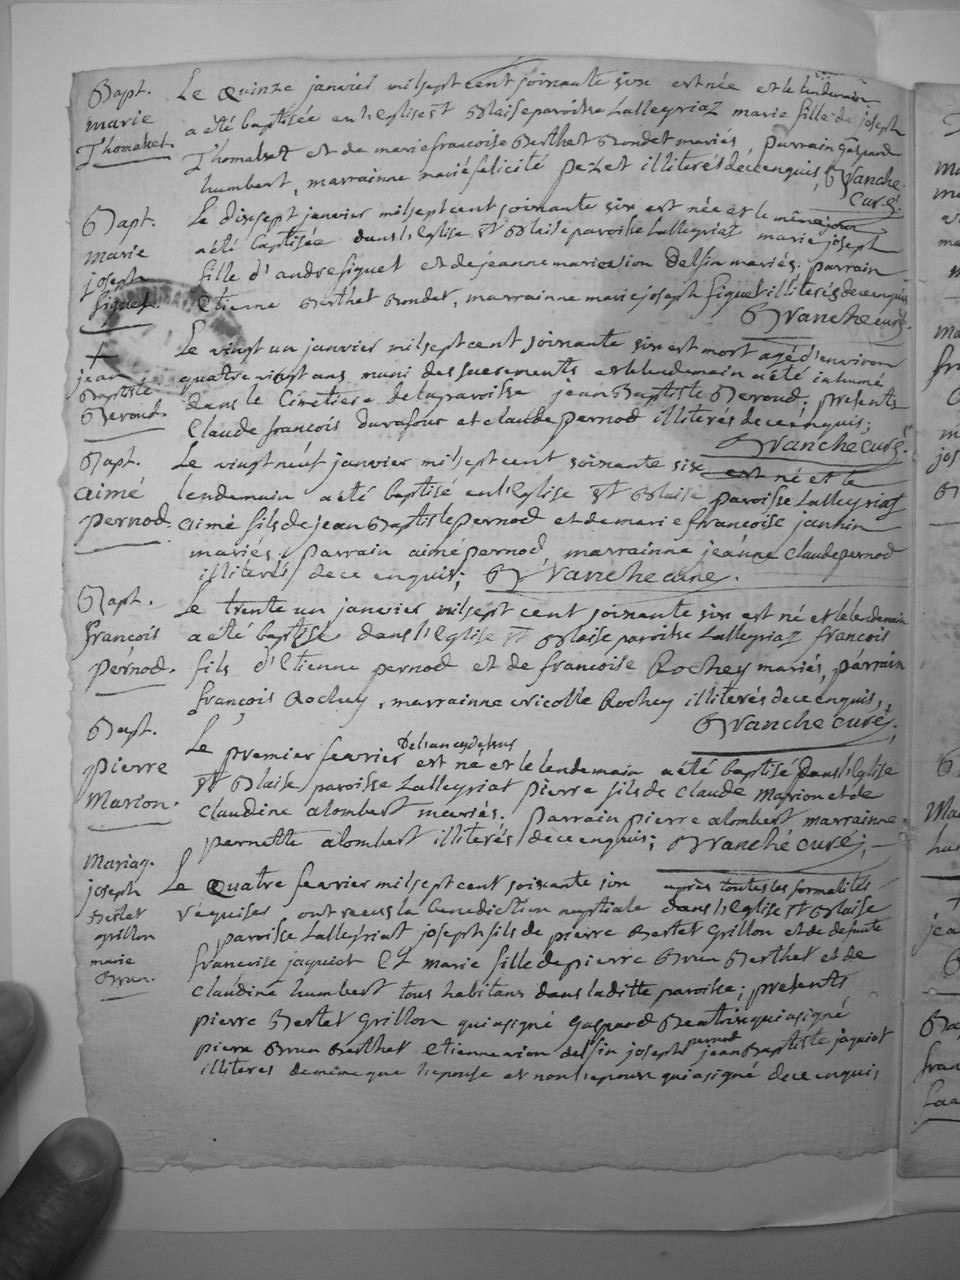 Bapt. Le quinze janvier mil sept cent soixante six est née et le lendemain
marie a été baptisée en l'Eglise St Blaise paroisse Lalleyriaz marie fille de joseph
Thomasset Thomasset et de marie francoise Berthet Bondet mariés, parrain Gaspard
humbert, marrainne marie felicité pezet illiterés de ce enquis, Branche
curé.
Bapt. Le dixsept janvier mil sept cent soixante six est née et le même jour
marie a été baptisée dans l'Eglise St Blaise paroisse Lalleyriaz marie joseph
joseph fille d'andre figuet et de jeanne marie vion Delfin mariés; parrain
figuet. Etienne Berthet Bondet, marrainne marie joseph figuet illiterés de ce enquis
Branche curé.
+ Le vingt un janvier mil sept cent soixante six est mort agé d'environ
jean quatre vingt ans muni des sacrements et le lendemain a été inhumé
Baptiste dans le Cimetiere de la paroisse jean Baptiste Beroud; presents
Beroud. Claude francois Durafour et claude pernod illiterés de ce enquis;
Branche curé.
Bapt. Le vingt neuf janvier mil sept cent soixante six est né et le
aimé lendemain a été baptisé en l'Eglise St Blaise paroisse Lalleyriaz
pernod. aimé fils de jean Baptiste pernod et de marie francoise
mariés. parrain aimé pernod, marrainne jeanne claude pernod
illiterés de ce enquis; Branche curé.
Bapt. Le trente un janvier mil sept cent soixante six est né et le lendemain
francois a été baptisé dans l'Eglise St Blaise paroisse Lalleyriaz francois
pernod. fils d'Etienne pernod et de francoise Rochey mariés, parrain
françois Rochey, marrainne nicolle Rochey illiterés de ce enquis,
Branche curé;
Bapt. Le premier fevrier De l'an cy dessus est né et le lendemain a été baptisé dans l'Eglise
pierre St Blaise paroisse Lalleyriat pierre fils de claude Marion et de
Marion. claudine alombert mariés. parrain pierre alombert marrainne
pernette alombert illiterés de ce enquis; Branche curé;
Mariag. Le quatre fevrier mil sept cent soixante six après toutes les formalités
joseph réquises ont receus la benediction nuptiale dans l'Eglise St Blaise
Bertet paroisse Lalleyriat joseph fils de pierre Bertet Grillon et de defunte
grillon francoise jaquiot Et marie fille de pierre Brun Berthet et de
marie claudine humbert tous habitans dans la ditte paroisse; presents
Brun. pierre Bertet Grillon qui a signé Gaspard qui a signé
pierre Brun Berthet Etienne vion delfin joseph pernod jean Baptiste jaquiot
illiteres de meme que l'epouse et non l'epoux qui a signé de ce enquis